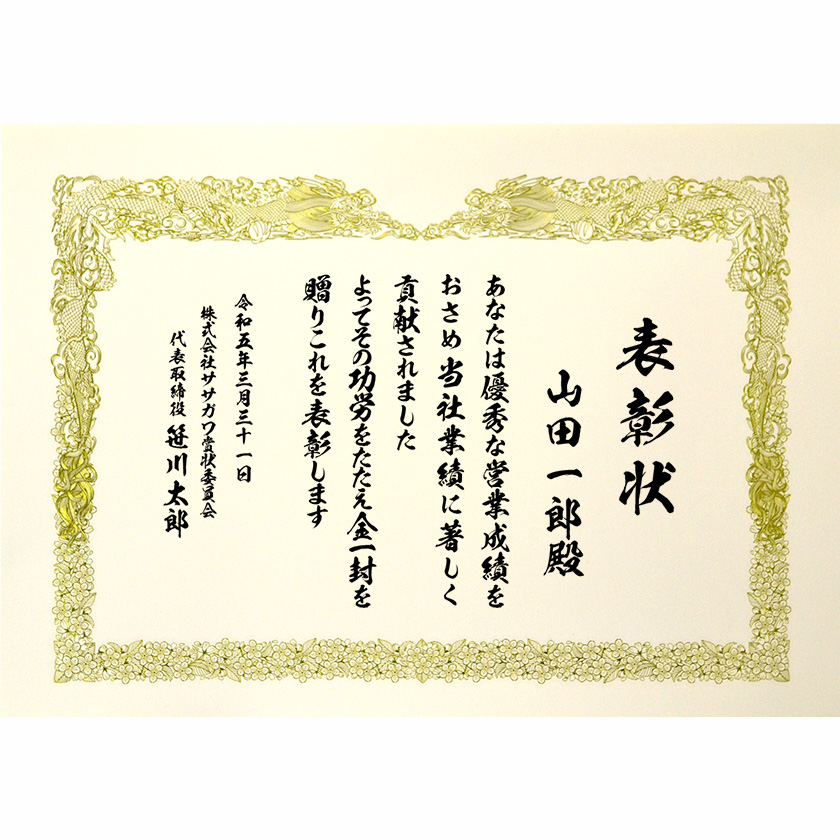 表彰状
山田一郎殿
あなたは優秀な営業成績を
おさめ当社業績に著しく
貢献されました
よってその功労をたたえ金一封を
贈りこれを表彰します
令和五年三月三十一日
株式会社ササガワ賞状委員会
代表取締役 笹川太郎